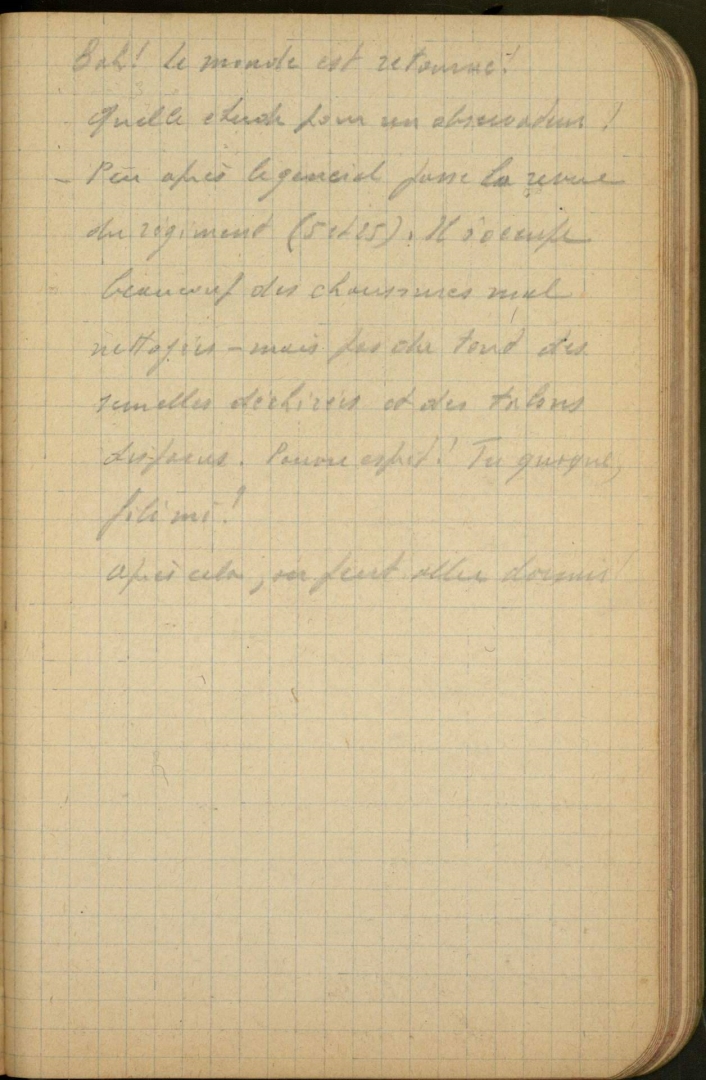 Bah! le monde est retourné!
Quelle etude pour un observateur!
- Peu après le general passe la revue
du régiment (5 et 25). Il s'occupe
beaucoup des chaussures mal
nettoyées - mais pas du tout des
semelles déchirées et des talons
disparus. Pauvre esprit! Tu quoque,
fili mi!
Après cela, on peut aller dormir!